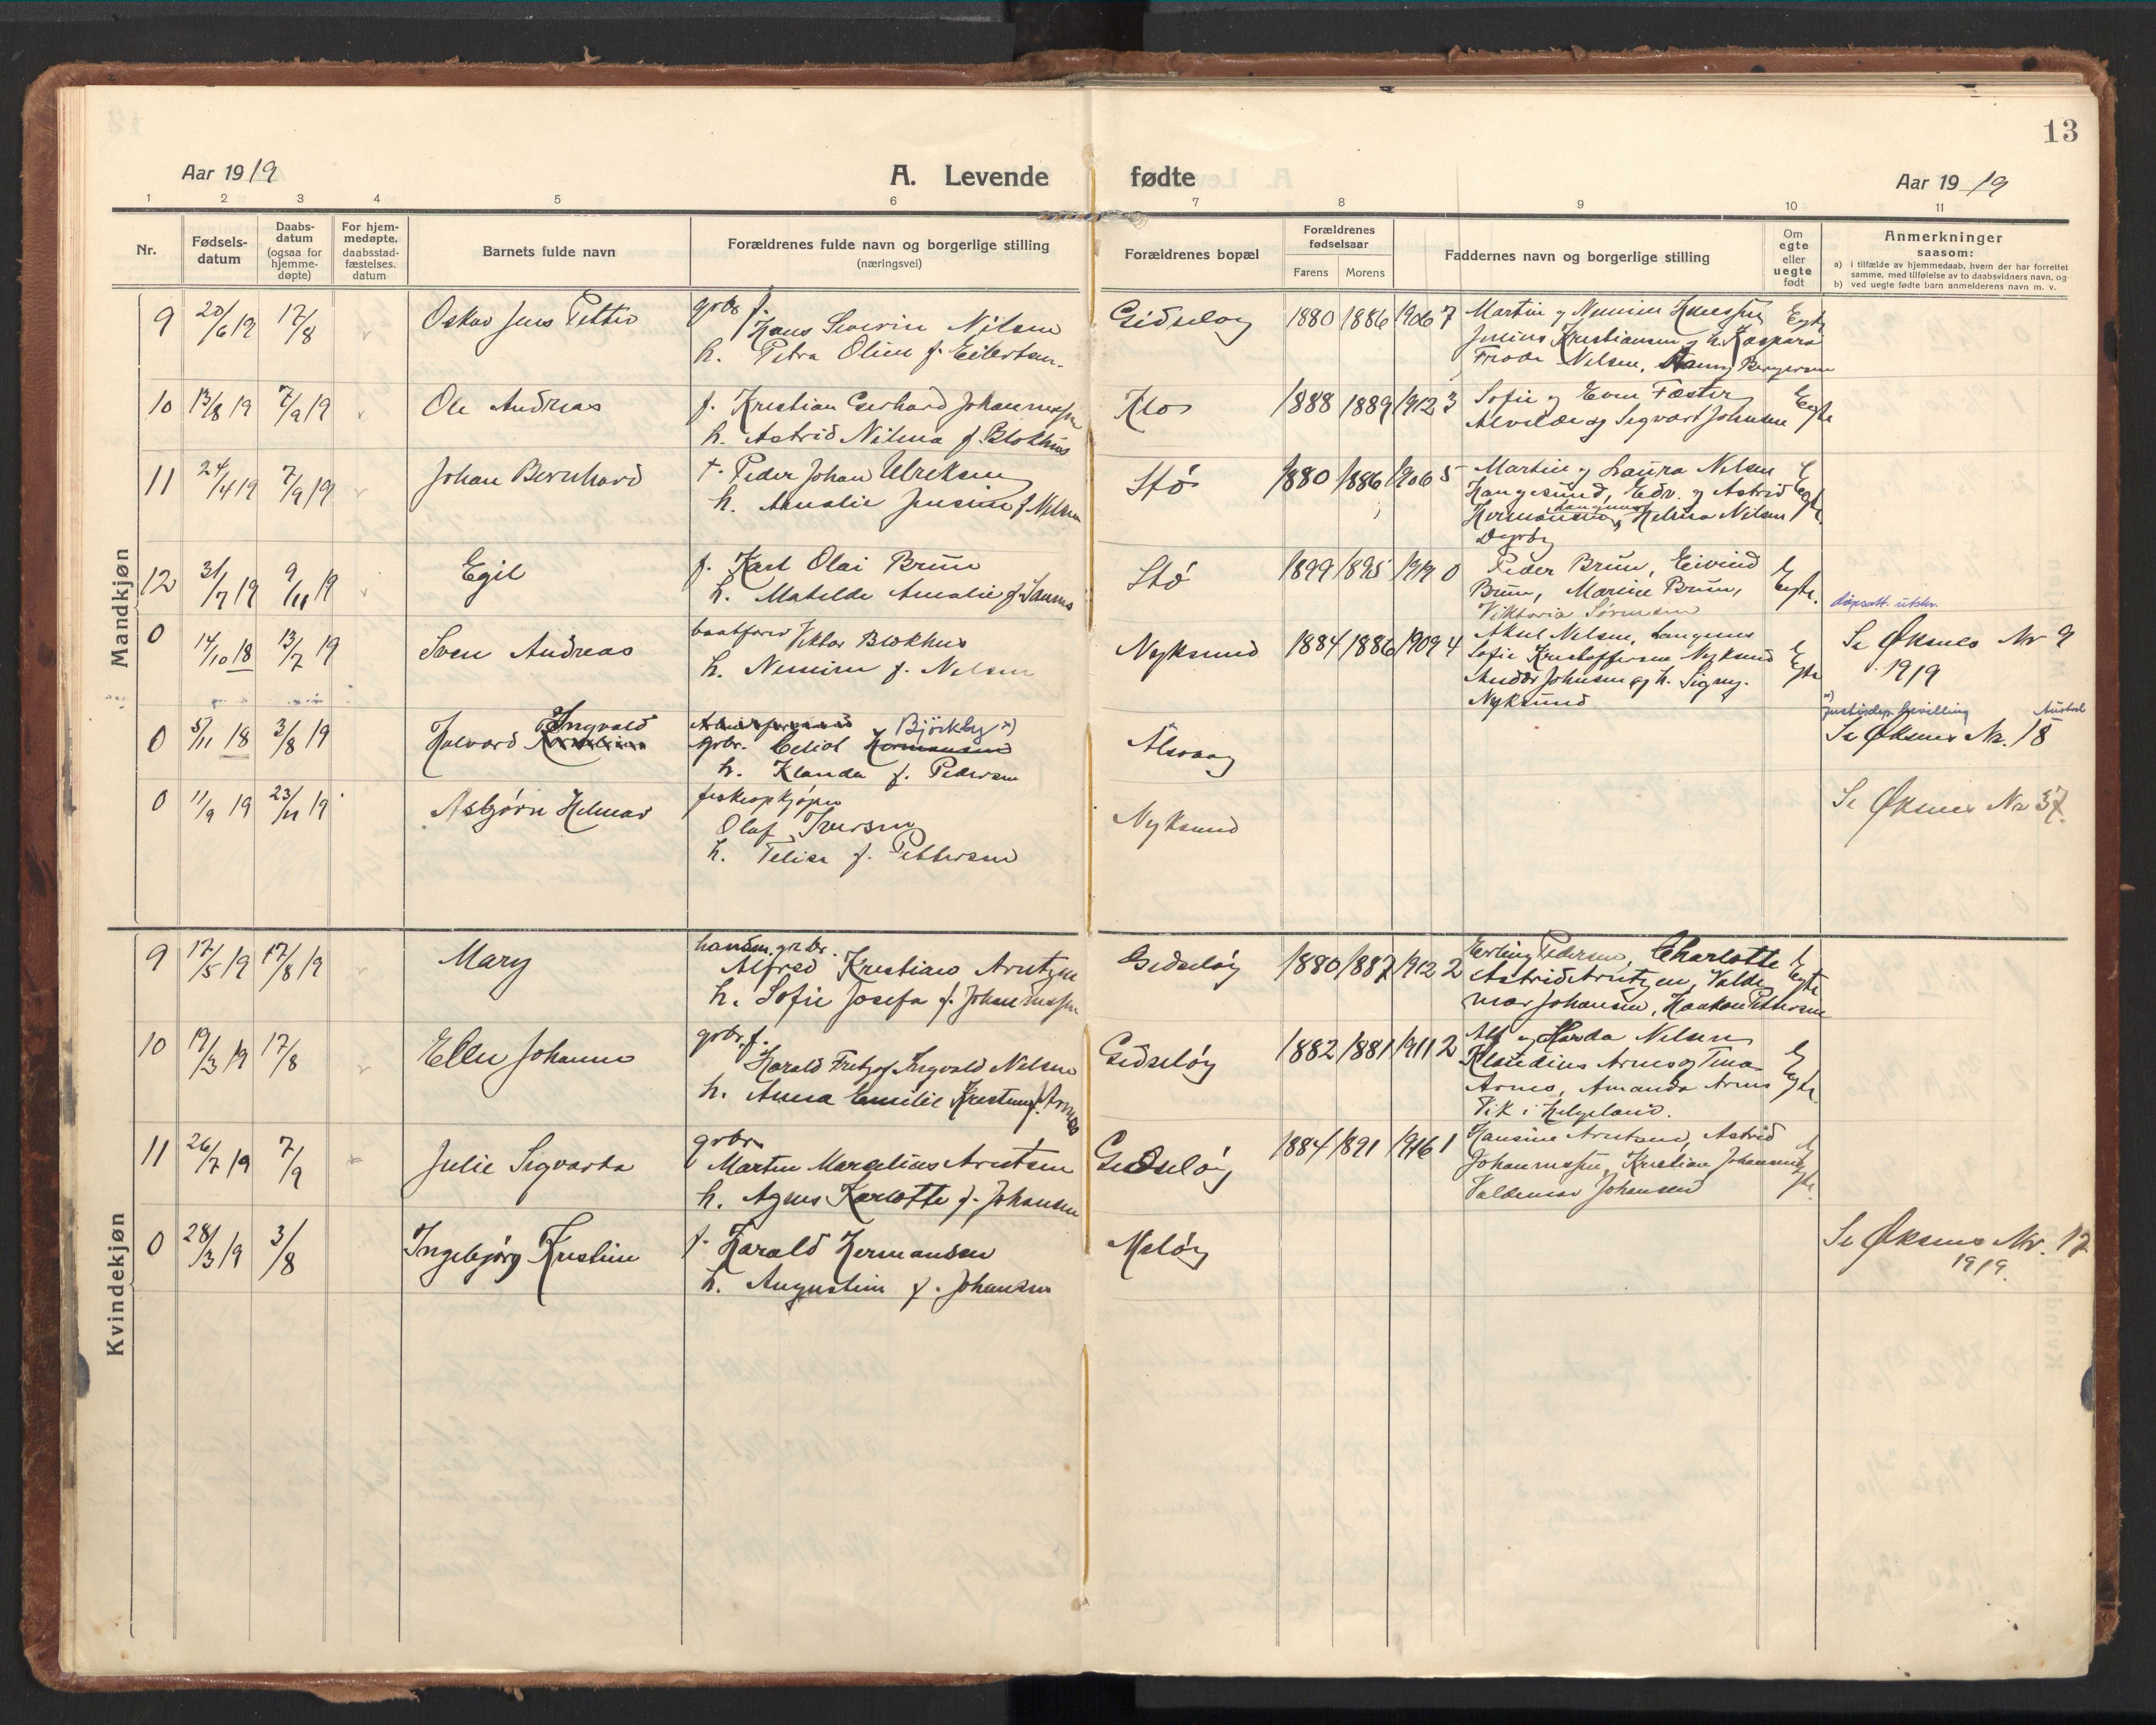 13
Aar 1919
A. Levende fødte
Aar 1919
1 2 3 4 5 6 7 8 9 10 11
Nr.
Fødsels-
datum
Daabs-
datum
(ogsaa for
hjemme-
døpte)
For hjem-
medøpte,
daabsstad-
fæstelses.
datum
Barnets fulde navn
Forældrenes fulde navn og borgerlige stilling
(næringsvei)
Forældrenes bopæl
Forældrenes
fødselsaar
Farens
Morens
Faddernes navn og borgerlige stilling
Om
egte
eller
uegte
født
Anmerkninger
saasom:
a) i tilfælde av hjemmedaab, hvem der har forrettet
samme, med tilføielse av to daabsvidners navn, og
b) ved uegte fødte barn anmelderens navn m. v.
Mandkjøn
9 20/6 19 17/8 Oskar Jens Petter
grbr f.
Hans Severin Nilsen
h. Petra Oline f. Eilertsen.
Gidsløy 1880 1886 1906 7
Martin og
Julius Kristiansen og h. Kaspara
Nilsen,
Egte
10 13/8 19 7/9 19 Ole Andreas
f. Kristian Gerhard Johannessen
h. Astrid Nilma f. Blokhus
Klo 1888 1889 1912 3
Sofie og Even Fæster
Alvilde og Sigvart Johnsen
Egte
11 24/4 19 7/9 19 Johan Bernhard
f. Peder Johan Ulriksen
h. Amalie Jensine f. Nilsen
Stø 1880 1886 1906 5
Martin og Laura Nilsen
Haugesund, Edv. og Astrid
Hermansen, Helma Nilsen
Egte.
12 31/7 19 9/11 19 Egil
f. Karl Olai Brun
h. Matilde Amalie f.
Stø 1899 1895 1919 0
Peder Brun, Eivind
Brun, Marine Brun,
Viktoria Sørensen
Egte.
dåpsatt. utskr.
0 14/10 18 13/7 19 Sven Andreas
baatfører Viktor Blokhus
h. f. Nilsen
Nyksund 1884 1886 1909 4
Nilsen, Langenes
Sofie Kristoffersen Nyksund
Johnsen og h. Signy.
Nyksund
Egte
Se Øksnes Nr 9
1919
0 5/11 18 3/8 19 Halvard Ingvald
Bjørkby x)
grbr. Hermansen
h. Klanda f. Pedersen
Alsvaag
x)
justisdep. bevilling
Se Øksnes Nr. 18
0 11/9 19 23/11 19 Asbjørn Helmar
fiskeopkjøper
Olaf Iversen
h. Felise f. Pettersen
Nyksund
Se Øksnes Nr 37.
Kvindekjøn
9 17/5 19 17/8 19 Mary
handm. grbr.
Alfred Kristian Arntzen
h. Sofie Josefa f. Johannessen
Gidsløy 1880 1887 1912 2
Erling Pedersen, Charlotte
Astrid Arntzen, Valde
mar Johansen, Haakon Pettersen
Egte
10 19/3 19 17/8 Ellen Johanne
grbr. f.
Harald Fritjof Ingvald Nilsen
h. Anna Emilie Kristine f. Arnes
Gidsløy 1882 1881 1911 2
Alf og Harda Nilsen
Klaudius Arnes og Tina
Arnes, Amanda Arnes
Vik i Helgeland.
Egte.
11 26/7 19 7/9 Julie Sigvarda
grbr.
Martin Marselius Arntsen
h. Agnes Karlotte f. Johansen
Gidsløy 1884 1891 1916 1
Hansine Arntsen, Astrid
Johannessen, Kristian Johannessen
Valdemar Johansen
Egte.
0 28/3 19 3/8 Ingebjørg Kristine
f. Harald Hermansen
h. Augustine f. Johansen
Meløy
Se Øksnes Nr. 12
1919.